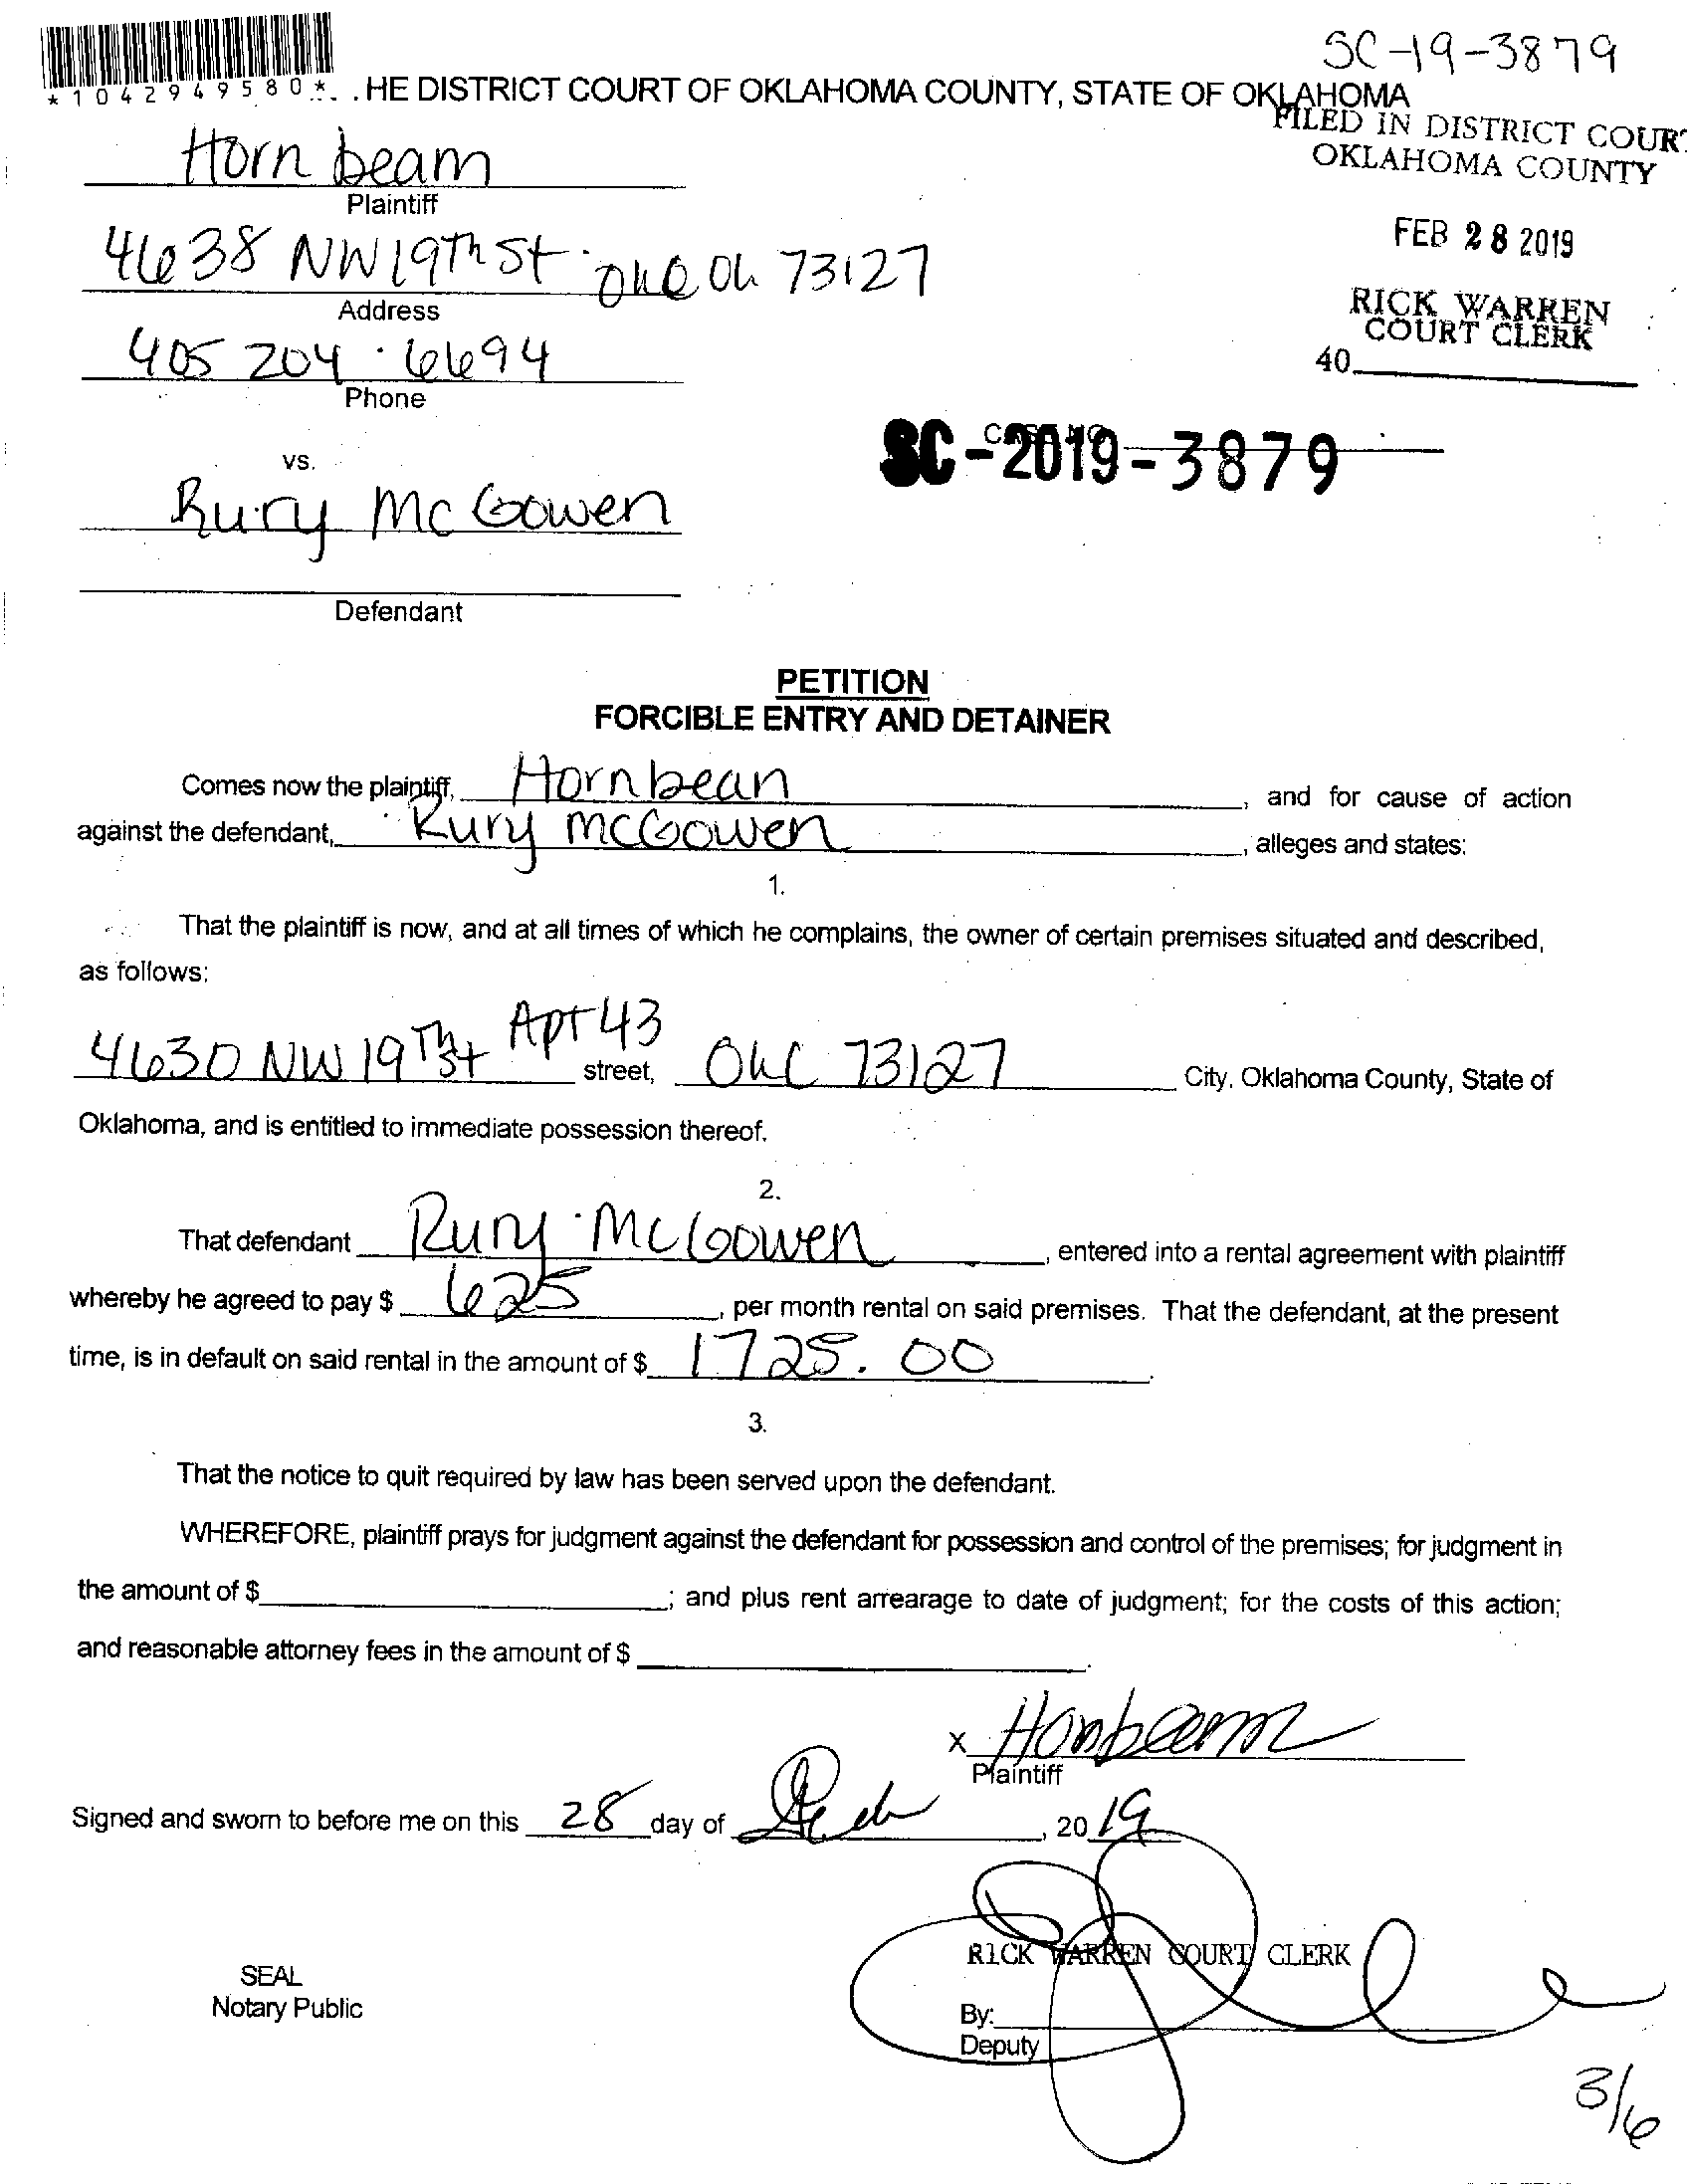 SC-19-3879
*1042949580*
HE DISTRICT COURT OF OKLAHOMA COUNTY, STATE OF OKLAHOMA
FILED IN DISTRICT COURT
OKLAHOMA COUNTY
Horn beam
Plaintiff
FEB 28 2019
4638 NW 19Th St OKC Ok 73127
Address
RICK WARREN
COURT CLERK
405 204 · 6694
Phone
40
SC-2019-3879
vs.
Rury McGowen
Defendant
PETITION
FORCIBLE ENTRY AND DETAINER
Comes now the plaintiff, Hornbean, and for cause of action
against the defendant, Rury McGowen, alleges and states:
1.
That the plaintiff is now, and at all times of which he complains, the owner of certain premises situated and described,
as follows:
4630 NW 19Th St Apt 43 street, OKC 73127 City, Oklahoma County, State of
Oklahoma, and is entitled to immediate possession thereof.
2.
That defendant Rury McGowen, entered into a rental agreement with plaintiff
whereby he agreed to pay $ 625, per month rental on said premises. That the defendant, at the present
time, is in default on said rental in the amount of $ 1725.00.
3.
That the notice to quit required by law has been served upon the defendant.
WHEREFORE, plaintiff prays for judgment against the defendant for possession and control of the premises; for judgment in
the amount of $; and plus rent arrearage to date of judgment; for the costs of this action;
and reasonable attorney fees in the amount of $.
x Hornbeam
Plaintiff
Signed and sworn to before me on this 28 day of Feb, 2019
RICK WARREN COURT CLERK
SEAL
Notary Public
By:
Deputy
3/6